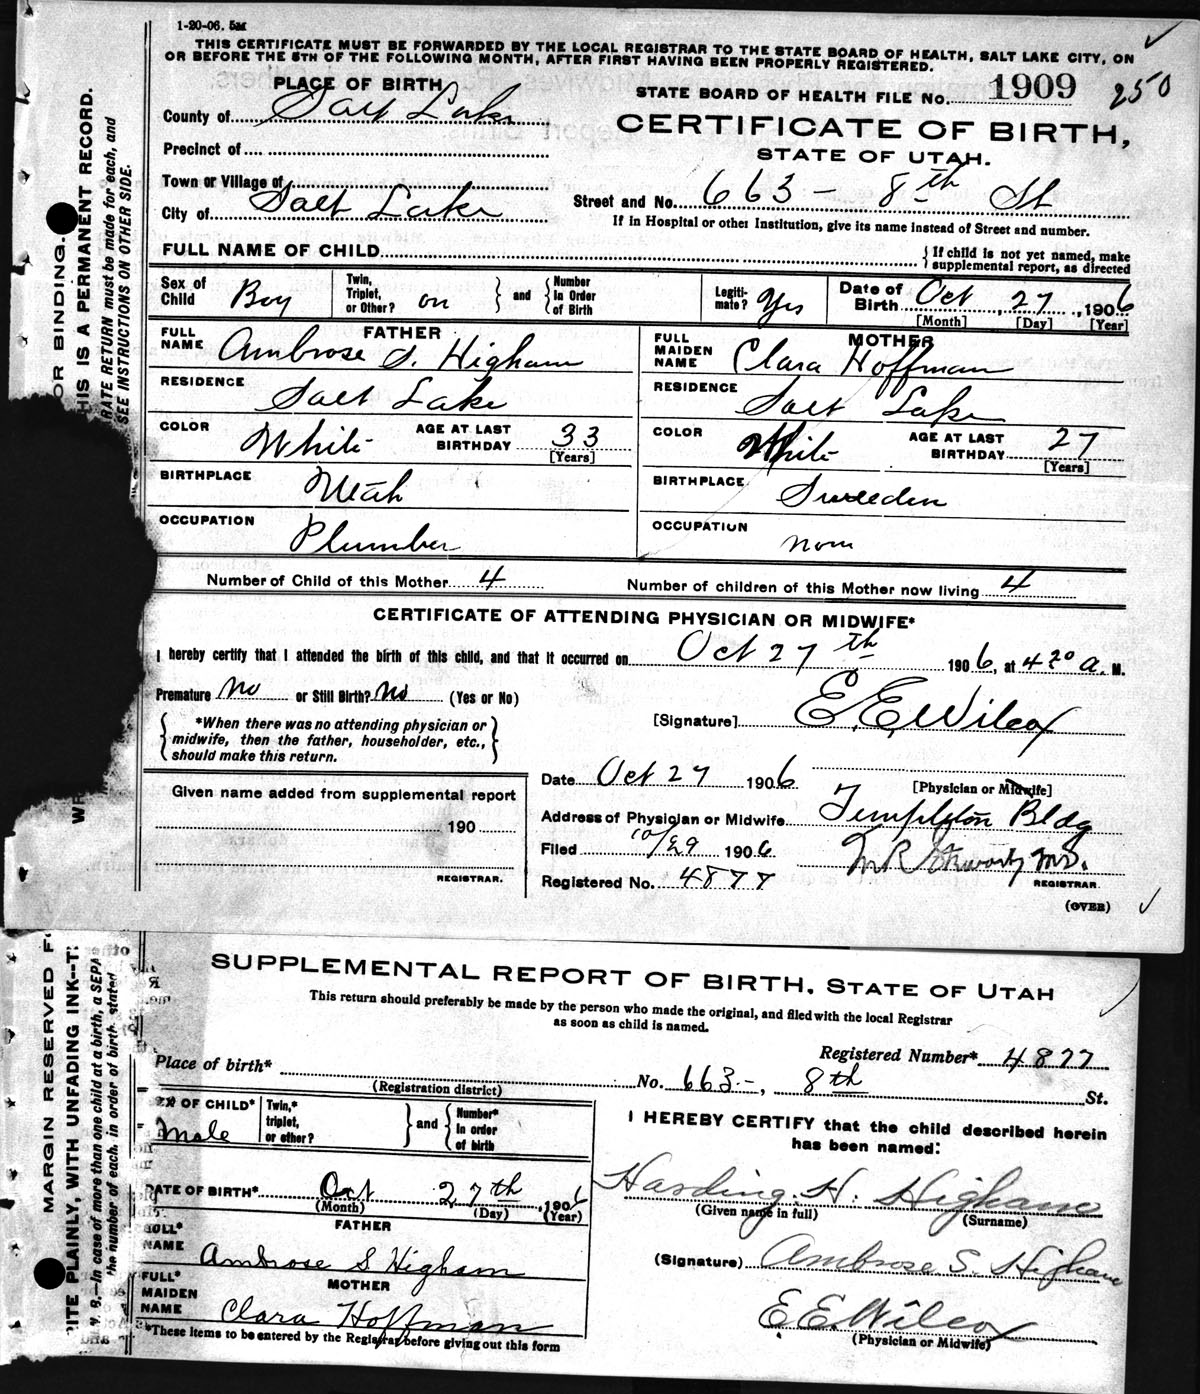 1-20-06. 5M
THIS CERTIFICATE MUST BE FORWARDED BY THE LOCAL REGISTRAR TO THE STATE BOARD OF HEALTH, SALT LAKE CITY, ON
OR BEFORE THE 5TH OF THE FOLLOWING MONTH, AFTER FIRST HAVING BEEN PROPERLY REGISTERED.
PLACE OF BIRTH
STATE BOARD OF HEALTH FILE NO. 1909 250
County of Salt Lake
CERTIFICATE OF BIRTH,
STATE OF UTAH.
Precinct of
Town or Village of
City of Salt Lake
Street and No. 663 - 8th St
If in Hospital or other Institution, give its name instead of Street and number.
FULL NAME OF CHILD
If child is not yet named, make
supplemental report, as directed
Sex of Child Boy
Twin, Triplet, or Other? on and Number In Order of Birth
Legiti-mate? Yes
Date of Birth Oct, 27, 1906
[Month] [Day] [Year]
FATHER
FULL NAME Ambrose S. Higham
RESIDENCE Salt Lake
COLOR White AGE AT LAST BIRTHDAY 33
[Years]
BIRTHPLACE Utah
OCCUPATION Plumber
MOTHER
FULL MAIDEN NAME Clara Hoffman
RESIDENCE Salt Lake
COLOR White AGE AT LAST BIRTHDAY 27
[Years]
BIRTHPLACE Sweeden
OCCUPATION non
Number of Child of this Mother 4 Number of children of this Mother now living 4
CERTIFICATE OF ATTENDING PHYSICIAN OR MIDWIFE*
I hereby certify that I attended the birth of this child, and that it occurred on Oct 27th 1906, at 4 20 a. M.
Premature no or Still Birth? no (Yes or No)
[Signature] E. E. Wilcox
*When there was no attending physician or
midwife, then the father, householder, etc.,
should make this return.
Date Oct 27 1906
[Physician or Midwife]
Given name added from supplemental report
190
REGISTRAR.
Address of Physician or Midwife Templeton Bldg
Filed 10/29 1906
M.D.
Registered No. 4877
REGISTRAR
(OVER)
SUPPLEMENTAL REPORT OF BIRTH, STATE OF UTAH
This return should preferably be made by the person who made the original, and filed with the local Registrar
as soon as child is named.
Registered Number* 4877
Place of birth* No. 663-, 8th St.
(Registration district)
SEX OF CHILD* Male
Twin,* triplet, or other? and Number* In order of birth
I HEREBY CERTIFY that the child described herein
has been named:
DATE OF BIRTH* Oct 27th, 1906
(Month) (Day) (Year)
Harding. H. Higham
(Given name in full) (Surname)
FATHER
FULL* NAME Ambrose S Higham
(Signature) Ambrose S. Higham
MOTHER
FULL* MAIDEN NAME Clara Hoffman
E. E. Wilcox
(Physician or Midwife)
*These items to be entered by the Registrar before giving out this form
OR BINDING.
THIS IS A PERMANENT RECORD.
RATE RETURN must be made for each, and
SEE INSTRUCTIONS ON OTHER SIDE.
MARGIN RESERVED F
RITE PLAINLY, WITH UNFADING INK--T
B.--In case of more than one child at a birth, a SEPA
the number of each, in order of birth, stated